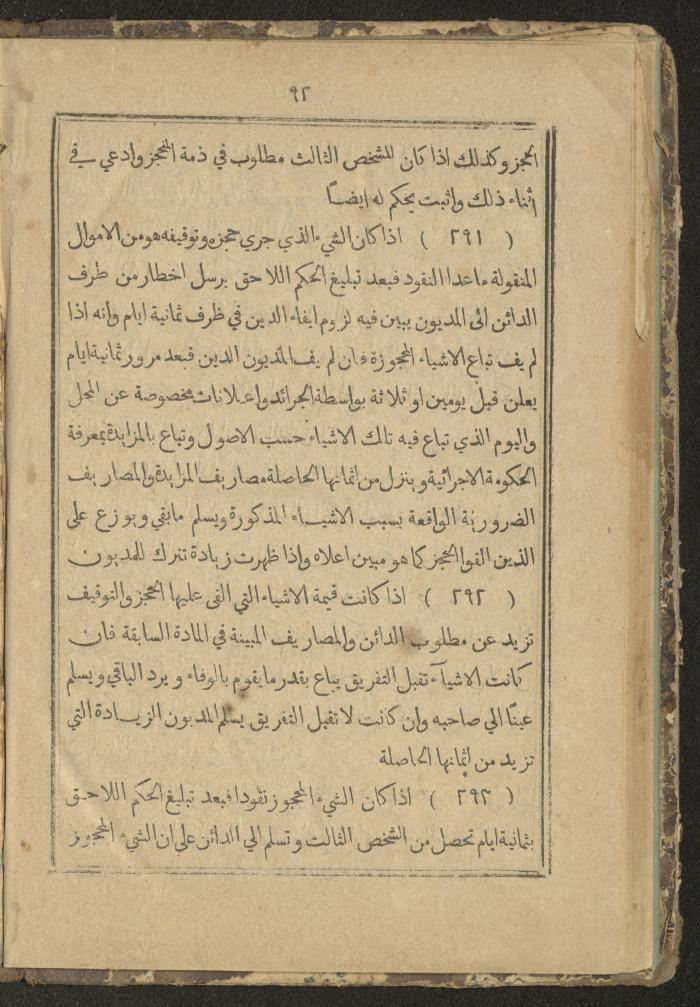 ٩٢
الحجز وكذلك اذا كان للشخص الثالث مطلوب في ذمة المحجز وادعي في
اثناء ذلك واثبت يحكم له ايضاً
( ٢٩١ ) اذا كان الشيء الذي جري حجزه وتوقيفه هو من الاموال
المنقولة ماعدا النقود فبعد تبليغ الحكم اللاحق يرسل اخطار من طرف
الدائن الى المديون يبين فيه لزوم ايفاء الدين في ظرف ثمانية ايام وانه اذا
لم يف تباع الاشياء المحجوزة فان لم يف المديون الدين فبعد مرور ثمانية ايام
يعلن قبل يومين او ثلاثة بواسطة الجرائد واعلانات مخصوصة عن المحل
واليوم الذي تباع فيه تلك الاشياء حسب الاصول وتباع بالمزايدة بمعرفة
الحكومة الاجرائية وينزل من اثمانها الحاصلة مصاريف المزايدة والمصاريف
الضرورية الواقعة بسبب الاشياء المذكورة ويسلم مابقي ويوزع على
الذين القوا الحجز كما هو مبين اعلاه واذا ظهرت زيادة تترك للمديون
( ٢٩٢ ) اذا كانت قيمة الاشياء التي القى عليها الحجز والتوقيف
تزيد عن مطلوب الدائن والمصاريف المبينة في المادة السابقة فان
كانت الاشيآء تقبل التفريق يباع بقدر ما يقوم بالوفاء ويرد الباقي ويسلم
عيناً الي صاحبه وان كانت لا تقبل التفريق يسلم المديون الزيادة التي
تزيد من اثمانها الحاصلة
( ٢٩٣ ) اذا كان الشيء المحجوز نقودا فبعد تبليغ الحكم اللاحق
بثمانية ايام تحصل من الشخص الثالث وتسلم الي الدائن علي ان الشيء المحجوز